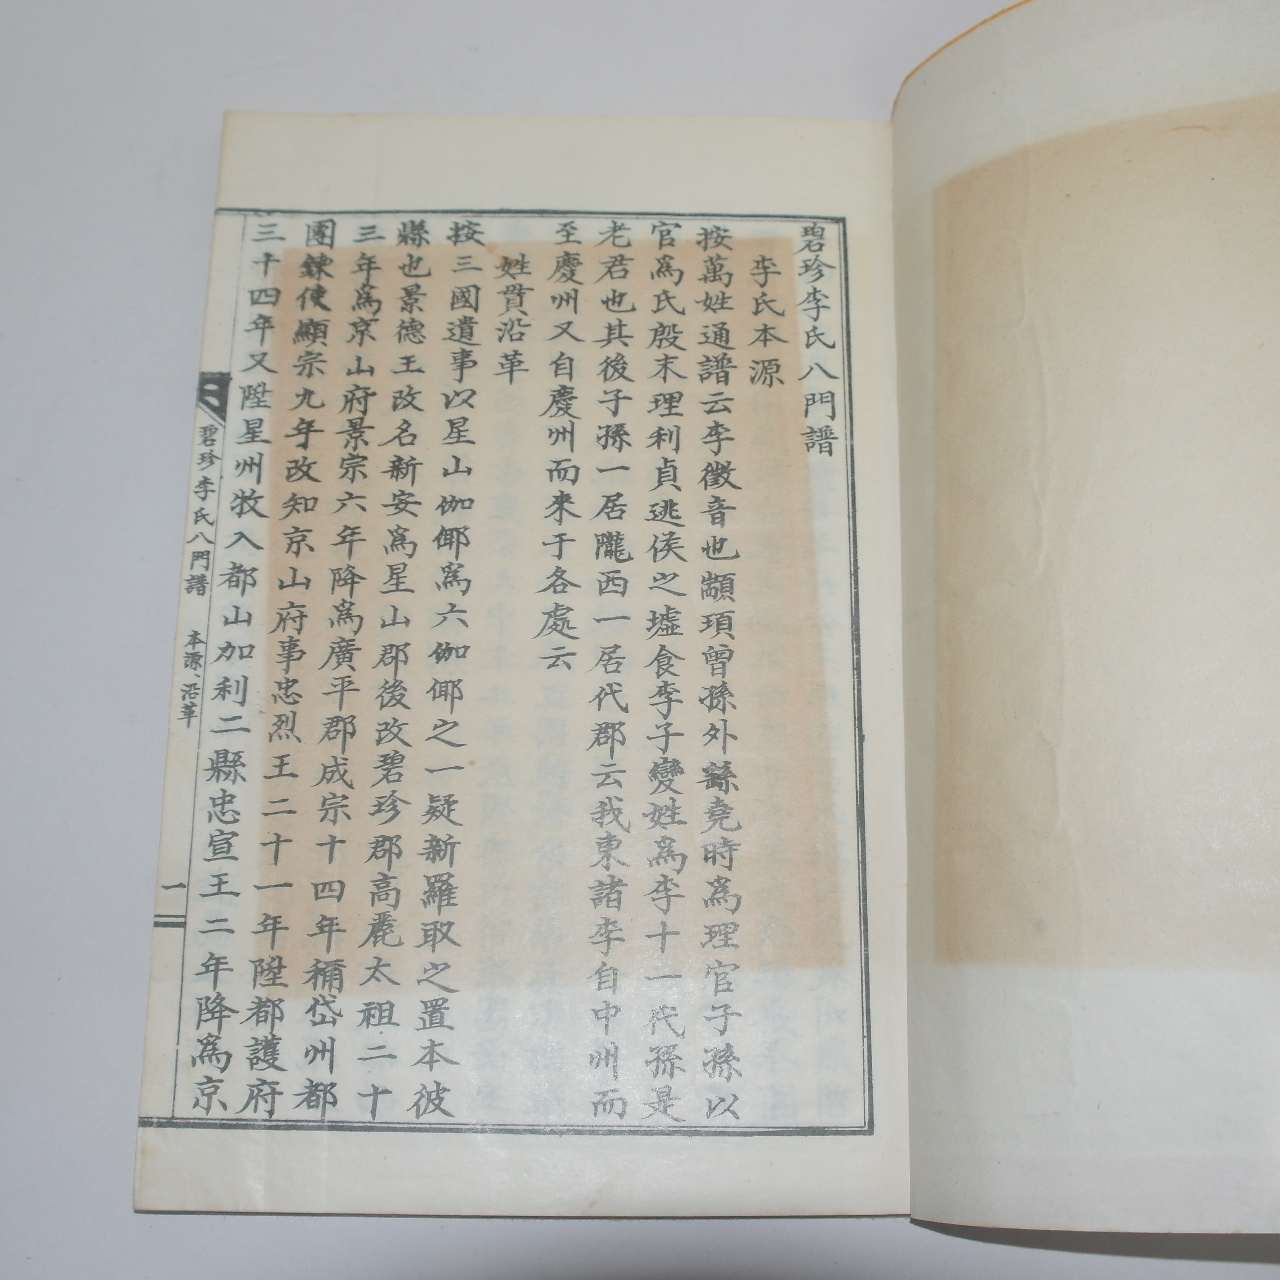 碧珍李氏八門譜
李氏本源
按萬姓通譜云李徵音也顓頊曾孫外繇堯時為理官子孫以
官爲氏殷末理利貞逃侯之墟食李子變姓爲李十一代孫是
老君也其後子孫一居隴西一居代郡云我東諸李自中州而
至慶州又自慶州而来于各處云
姓貫沿革
按三國遺事以星山伽倻爲六伽倻之一疑新羅取之置本彼
縣也景德王改名新安爲星山郡後改碧珍郡高麗太祖二十
三年爲京山府景宗六年降爲廣平郡成宗十四年稱岱州都
團鍊使顯宗九年改知京山府事忠烈王二十一年陞都護府
三十四年又陞星州牧入都山加利二縣忠宣王二年降爲京
碧珍李氏八門譜 本源、沿革 一